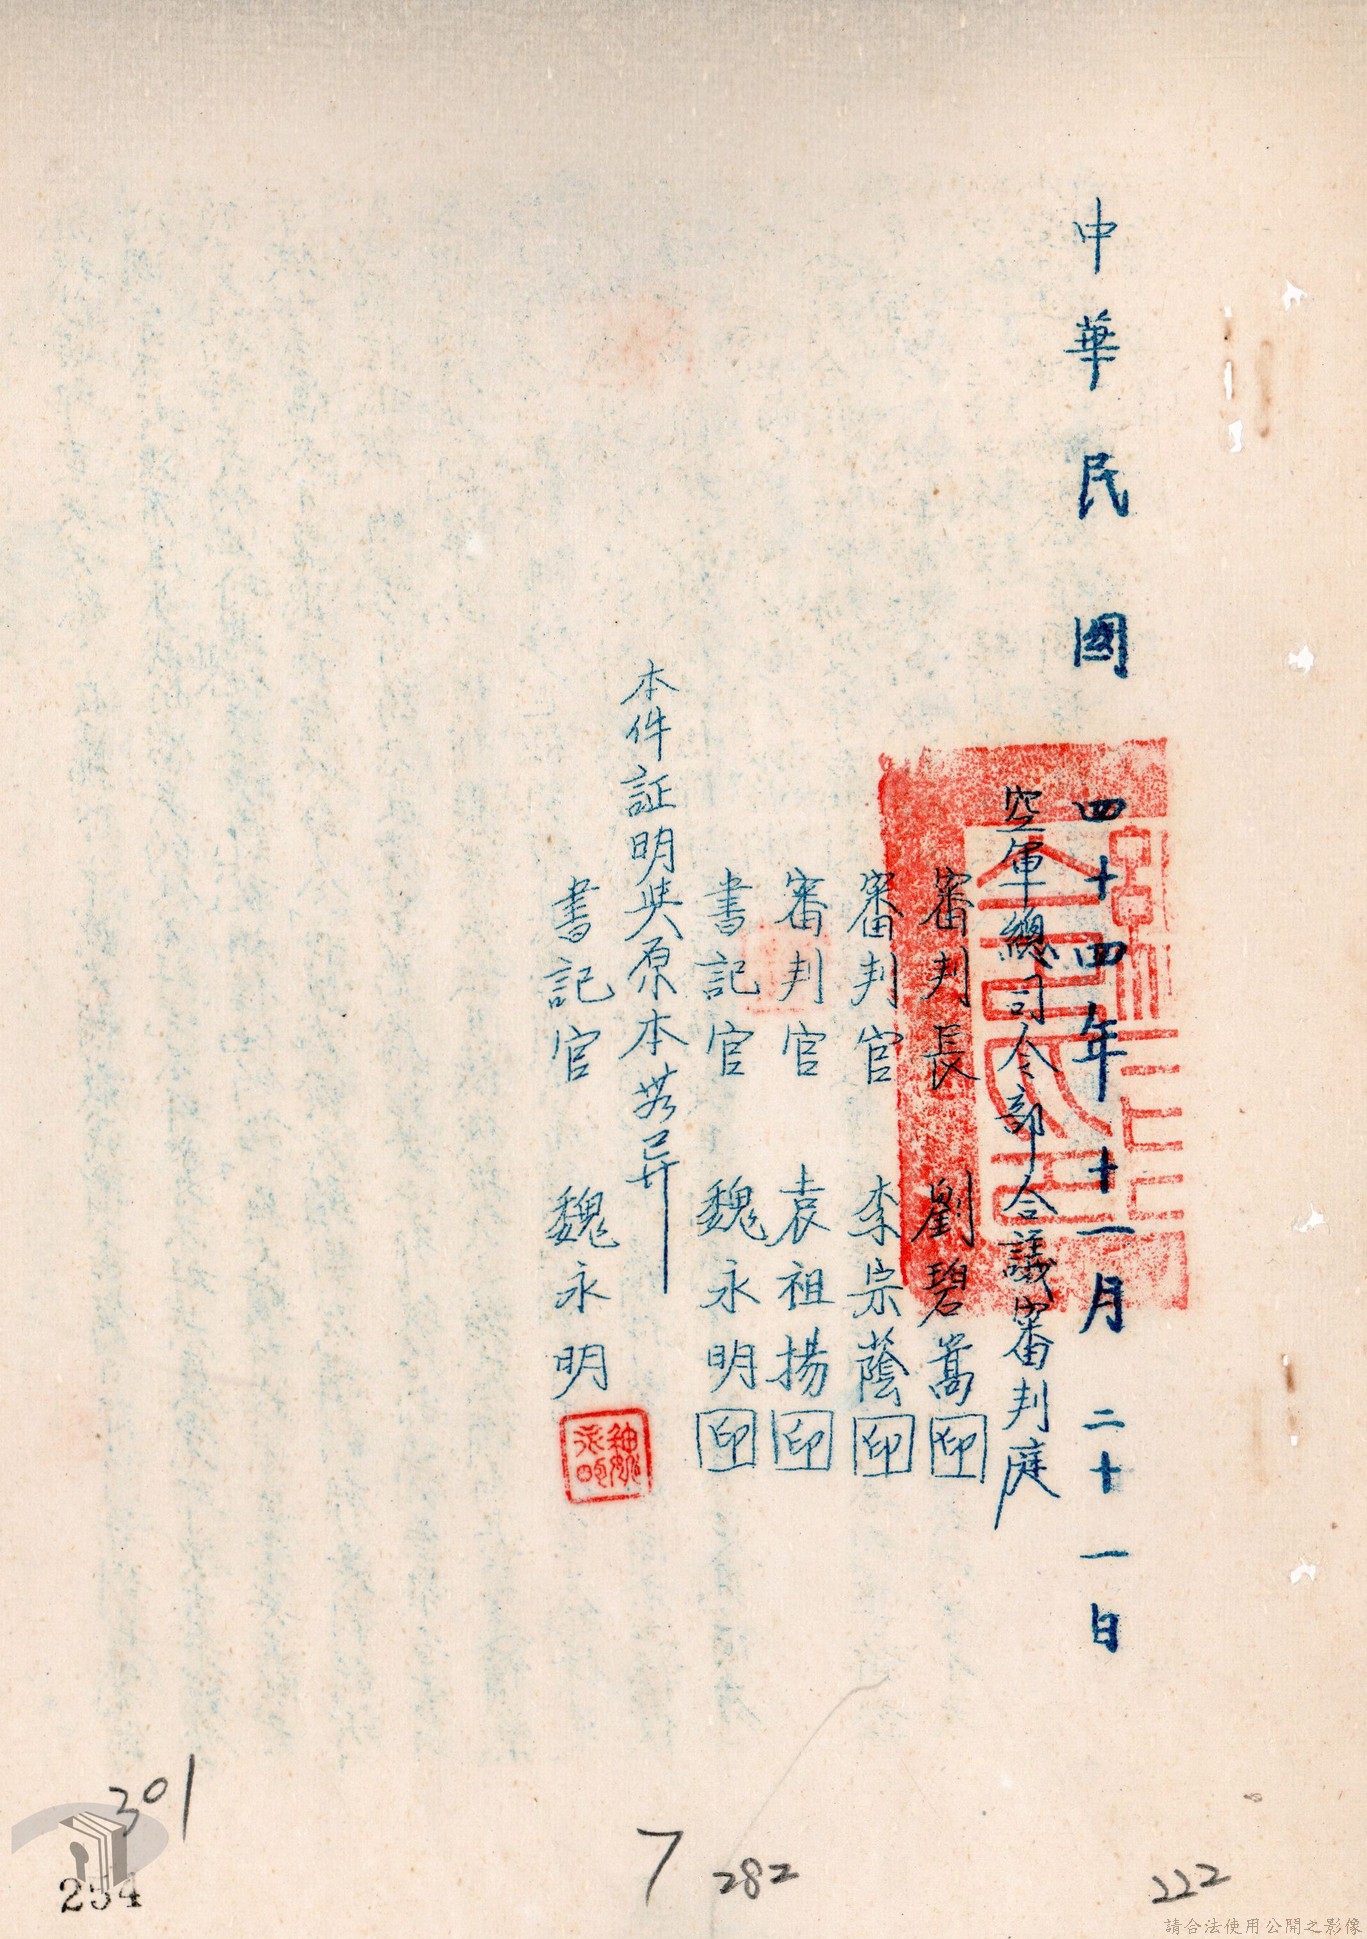 中華民國四十四年十一月二十一日
空軍總司令部合議審判庭
審判長 劉碧嵩 印
審判官 李宗蔭 印
審判官 袁祖揚 印
書記官 魏永明 印
本件証明與原本無異
書記官 魏永明
魏永明
301
254
7
282
222
請合法使用公開之影像